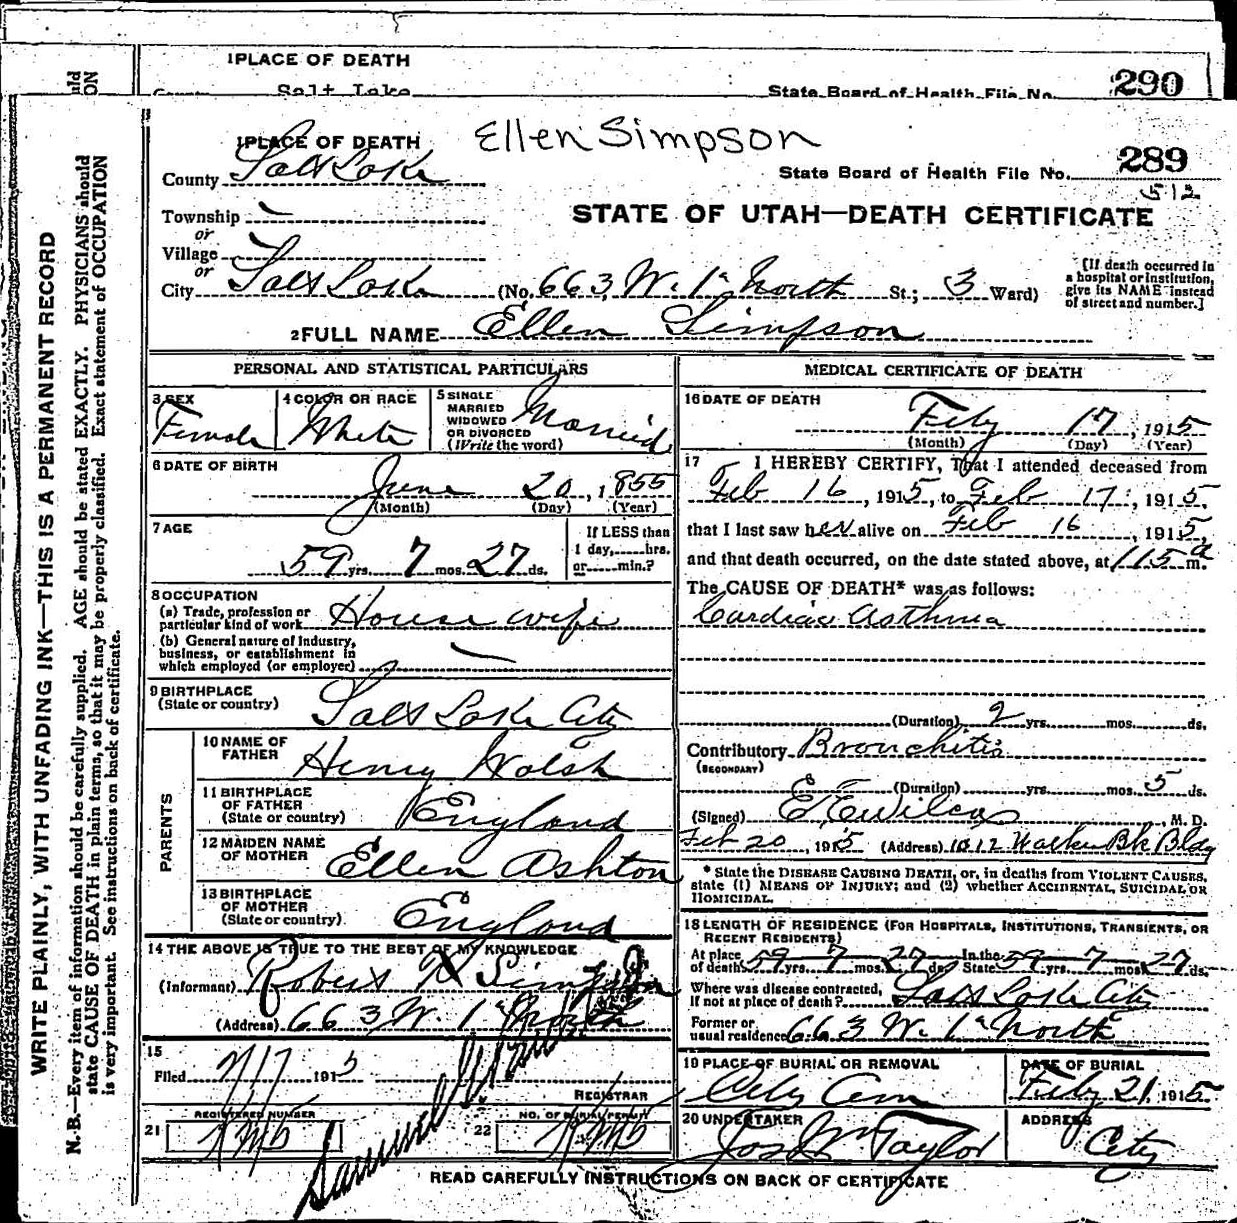 1PLACE OF DEATH
Salt Lake
State Board of Health File No. 290
Ellen Simpson
1PLACE OF DEATH
County Salt Lake
State Board of Health File No. 289
512
Township —
or
STATE OF UTAH—DEATH CERTIFICATE
Village
or
City Salt Lake (No. 663 W. 1st North St.; 3 Ward)
[If death occurred in
a hospital or institution,
give its NAME instead
of street and number.]
2FULL NAME Ellen Simpson
PERSONAL AND STATISTICAL PARTICULARS
3 SEX
Female
4 COLOR OR RACE
White
5 SINGLE
MARRIED
WIDOWED
OR DIVORCED
(Write the word)
Married
6 DATE OF BIRTH
June 20, 1855
(Month) (Day) (Year)
7 AGE
59 yrs. 7 mos. 27 ds.
If LESS than
1 day, hrs.
or min.?
8 OCCUPATION
(a) Trade, profession or
particular kind of work House wife
(b) General nature of Industry,
business, or establishment in
which employed (or employer) —
9 BIRTHPLACE
(State or country) Salt Lake City
PARENTS
10 NAME OF
FATHER Henry Walsh
11 BIRTHPLACE
OF FATHER
(State or country) England
12 MAIDEN NAME
OF MOTHER Ellen Ashton
13 BIRTHPLACE
OF MOTHER
(State or country) England
14 THE ABOVE IS TRUE TO THE BEST OF MY KNOWLEDGE
(Informant) Robert Simpson
(Address) 663 W. 1st North
15
Filed 1915
REGISTRAR
REGISTERED NUMBER
21
NO. OF BURIAL PERMIT
22
MEDICAL CERTIFICATE OF DEATH
16 DATE OF DEATH
Feby 17, 1915
(Month) (Day) (Year)
17 I HEREBY CERTIFY, That I attended deceased from
Feb 16, 1915, to Feb 17, 1915,
that I last saw her alive on Feb 16, 1915,
and that death occurred, on the date stated above, at 115 a m.
The CAUSE OF DEATH* was as follows:
Cardiac Asthma
(Duration) 2 yrs. mos. ds.
Contributory Bronchitis
(SECONDARY)
(Duration) yrs. mos. 5 ds.
(Signed) E. E. Wilcox M. D.
Feb 20, 1915 (Address) 1012 Walker Bk Bldg
* State the DISEASE CAUSING DEATH, or, in deaths from VIOLENT CAUSES,
state (1) MEANS OF INJURY; and (2) whether ACCIDENTAL, SUICIDAL OR
HOMICIDAL.
18 LENGTH OF RESIDENCE (FOR HOSPITALS, INSTITUTIONS, TRANSIENTS, OR
RECENT RESIDENTS)
At place
of death 59 yrs. 7 mos. 27 ds. In the State 59 yrs. 7 mos. 27 ds.
Where was disease contracted,
if not at place of death? Salt Lake City
Former or
usual residence 663 W. 1st North
19 PLACE OF BURIAL OR REMOVAL
City Cem
DATE OF BURIAL
Feby 21 1915
20 UNDERTAKER
Jos Wm Taylor
ADDRESS
City
READ CAREFULLY INSTRUCTIONS ON BACK OF CERTIFICATE
WRITE PLAINLY, WITH UNFADING INK—THIS IS A PERMANENT RECORD
N. B.—Every item of information should be carefully supplied. AGE should be stated EXACTLY. PHYSICIANS should
state CAUSE OF DEATH in plain terms, so that it may be properly classified. Exact statement of OCCUPATION
is very important. See instructions on back of certificate.